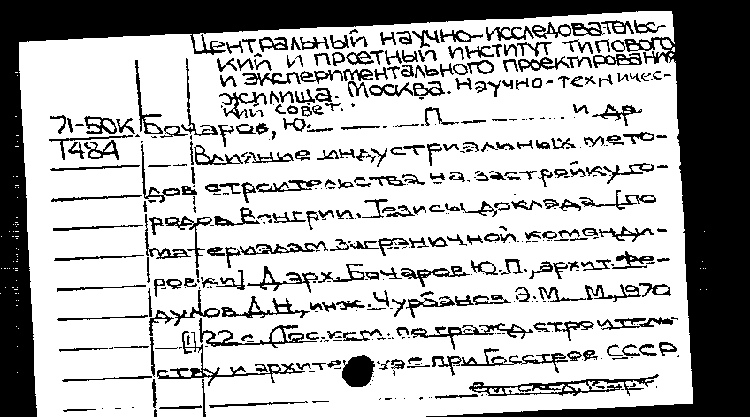 Центральный научно-исследовательс-
кий и проетный институт типового
и экспериментального проектирования
жилища. Москва. Научно-техничес-
кий совет.
71-50К Бочаров, Ю. П. и др
1484 Влияние индустриальных мето-
дов строительства на застройку го-
родов Венгрии. Тезисы доклада [по
материалам заграничной команди-
ровки] Д.арх. Бочаров Ю.П., архит. Фе-
дулов Д.Н., инж. Чурбанов Э.М. М., 1970
22 с. (Гос. ком. по гражд. строитель-
ству и архитектуре при Госстрое СССР
см. след. карт